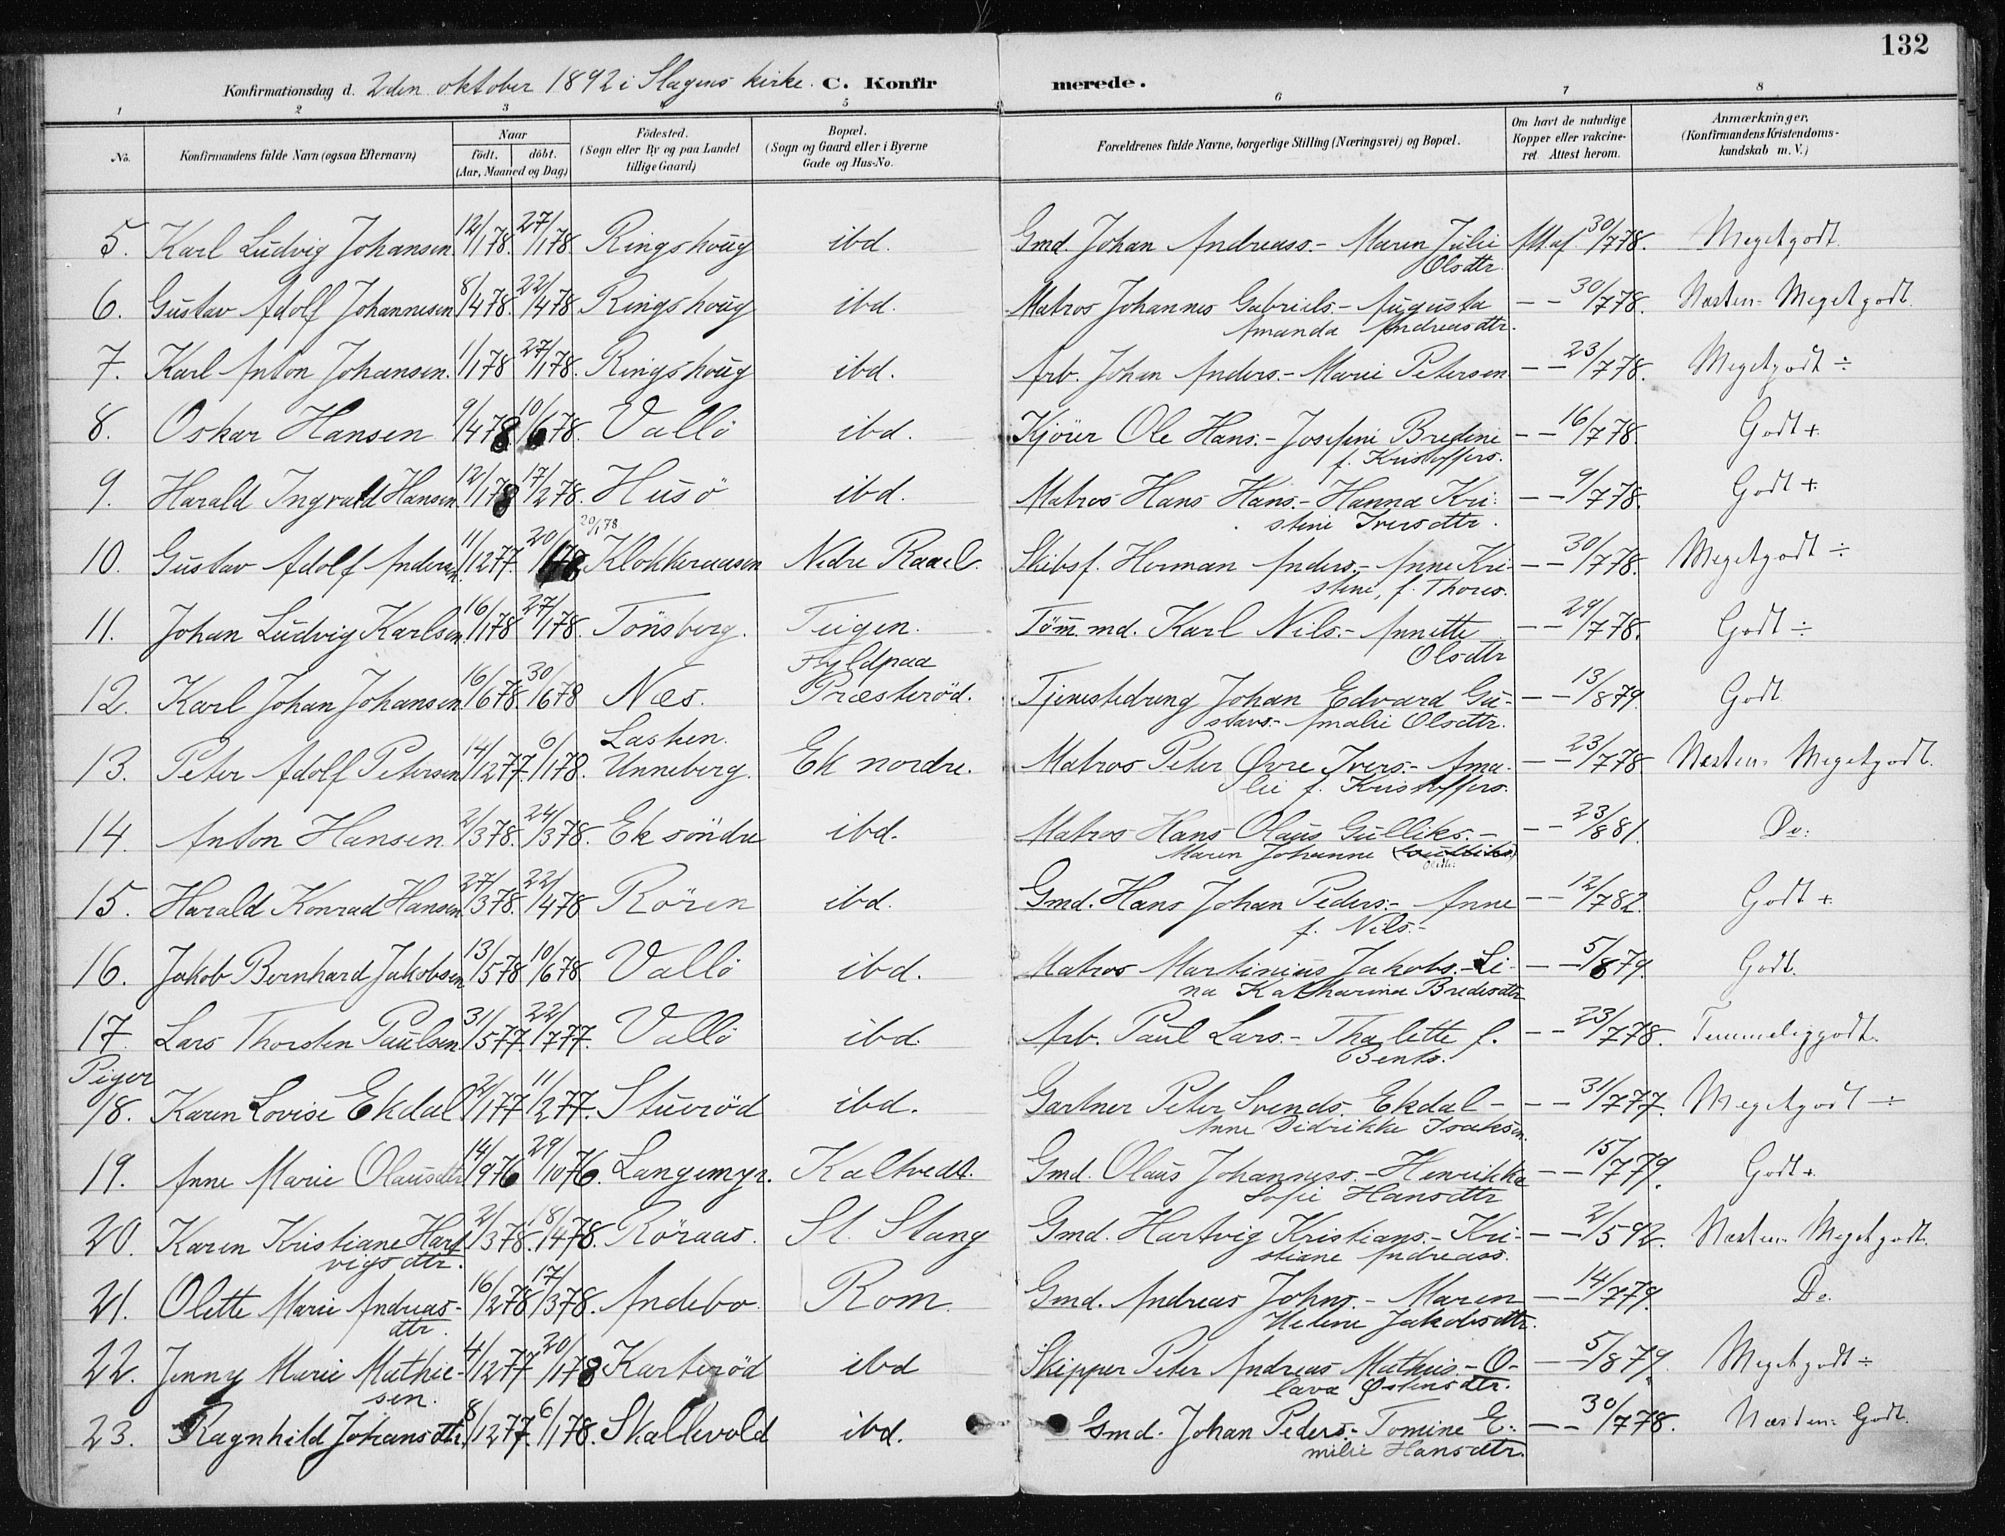 132
Konfirmationsdag d. 2den oktober 1892 i Slagens kirke. C. Konfirmerede.
1 2 3 4 5 6 7 8
No. Konfirmandens fulde Navn (ogsaa Efternavn) Naar født. døbt. (Aar, Maaned og Dag) Fødested. (Sogn eller By og paa Landet tillige Gaard) Bopæl. (Sogn og Gaard eller i Byerne Gade og Hus-No. Forældrenes fulde Navne, borgerlige Stilling (Næringsvei) og Bopæl. Om havt de naturlige Kopper eller vakcineret. Attest herom. Anmærkninger, (Konfirmandens Kristendomskundskab m. V.)
5. Karl Ludvig Johansen 12/1 78. 27/1 78. Ringshoug ibd. Gmd. Johan Andreass. – Maren Julie Olsdtr. Att. af 30/7 78. Megetgodt.
6. Gustav Adolf Johannesen 8/4 78. 22/4 78 Ringshoug ibd. Matros Johannes Gabriels. – Augusta Amanda Andreasdtr. – – 30/7 78. Næsten Megetgodt.
7. Karl Anton Johansen. 1/1 78 27/1 78. Ringshoug ibd. Arb. Johan Anders. – Marie Petersen – – 23/7 78. Megetgodt ÷
8. Oskar Hansen 9/4 78 10/6 78. Vallö ibd. Kjöür Ole Hans. – Josefine Bredine f. Kristoffers. – – 16/7 78. Godt +
9. Harald Ingvald Hansen 12/1 78 17/2 78. Husö ibd. Matros Hans Hans. – Hanna Kristine Iversdtr. – – 9/7 78. Godt +
20/1 78
10. Gustav Adolf Andersen 11/12 77. 20/1 78 Klokkeraasen Nedre Raael. Skibsf. Herman Anders. – Anne Kristine, f. Thores. – – 30/7 78. Megetgodt ÷
11. Johan Ludvig Karlsen 16/1 78 27/1 78. Tönsberg. Teigen. Tömmd. Karl Nils. – Annette Olsdtr – – 29/7 78. Godt ÷
12. Karl Johan Johansen 16/6 78. 30/6 78 Næs. Fyldpaa Præsteröd. Tjenestedreng Johan Edvard Gustavs. – Amalie Olsdtr. – – 13/8 79 Godt
13. Peter Adolf Petersen 14/12 77 6/1 78. Lasken. Unneberg. Ek nordre. Matros Peter Øvre Ivers. – Amalie f. Kristoffers. – – 23/7 78 Næsten Megetgodt.
14. Anton Hansen 2/3 78. 24/3 78. Ek söndre ibd. Matros Hans Olaus Gulliks. – Maren Johanne – – 23/8 81. Do:
15. Harald Konrad Hansen 27/3 78. 22/4 78 Rören ibd. Gmd. Hans Johan Peders. – Anne f. Nils. – – – 12/7 82. Godt +
16. Jakob Bernhard Jakobsen 13/5 78 10/6 78. Vallö ibd. Matros Martinius Jakobs. – Lina Katharina Bredesdtr – – 5/8 79. Godt.
17. Lars Thorsten Paulsen 31/5 77. 22/7 77. Vallö ibd. Arb. Paul Lars. – Thalette f. Bents. – – 23/7 78. Temmeliggodt.
Piger
18. Karen Lovise Ekdal 2/1 77 11/2 77. Stueröd ibd. Gartner Peter Svends. Ekdal – Anne Didrikke Isaksen. – – 31/7 77. Megetgodt ÷
19. Anne Marie Olausdtr 14/9 76 29/10 76. Langemyr. Kaltvedt. Gmd. Olaus Johanness. – Henrikke Sofie Hansdtr – – 15/7 79. Godt +
20. Karen Kristiane Hartvigsdtr. 2/3 78. 18/4 78. Röraas. St. Stang Gmd. Hartvig Kristians. – Kristiane Andreass. – – 2/5 92. Næsten Megetgodt.
21. Olette Marie Andreasdtr. 16/2 78 17/3 78. Andebo. Rom Gmd. Andreas Johns. – Maren Helene Jakobsdtr. – – 14/7 79. Do.
22. Jenny Marie Mathiesen. 4/12 77 20/1 78 Karteröd ibd Skipper Peter Andreas Mathis. – Olava Østensdtr. – – 5/8 79. Megetgodt ÷
23. Ragnhild Johansdtr. 8/12 77. 6/1 78. Skallevold ibd. Gmd. Johan Peders. – Tomine Emilie Hansdtr. – – 30/7 78. Næsten Godt.